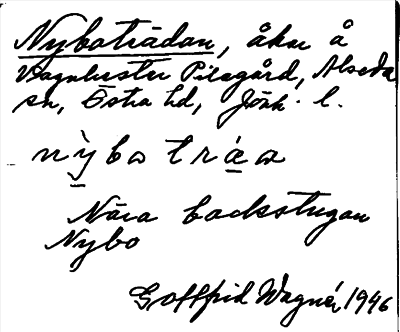 Nyboträdan, åker å
Vagnhester Pilagård, Alseda
sn, Östra hd, Jönk. l.
nỳbo tráa
Nära backstugan
Nybo
Gottfrid Wagnér 1946